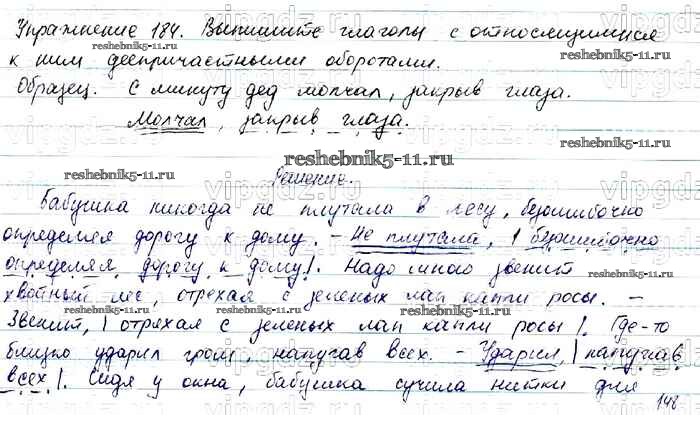 Упражнение 184. Выпишите глаголы с относящимися
reshebnik5-11.ru
к ним деепричастными оборотами.
Образец. С минуту дед молчал, закрыв глаза.
Молчал, закрыв глаза.
reshebnik5-11.ru
Решение.
Бабушка никогда не плутала в лесу, безошибочно
определяя дорогу к дому. - Не плутала, | безошибочно
определяя дорогу к дому|. Надо мною звенит
хвойный лес, отряхая с зеленых лап капли росы. -
Звенит, | отряхая с зеленых лап капли росы |. Где-то
близко ударил гром, напугав всех. - Ударил, | напугав
всех|. Сидя у окна, бабушка сучила нитки для
reshebnik5-11.ru
148